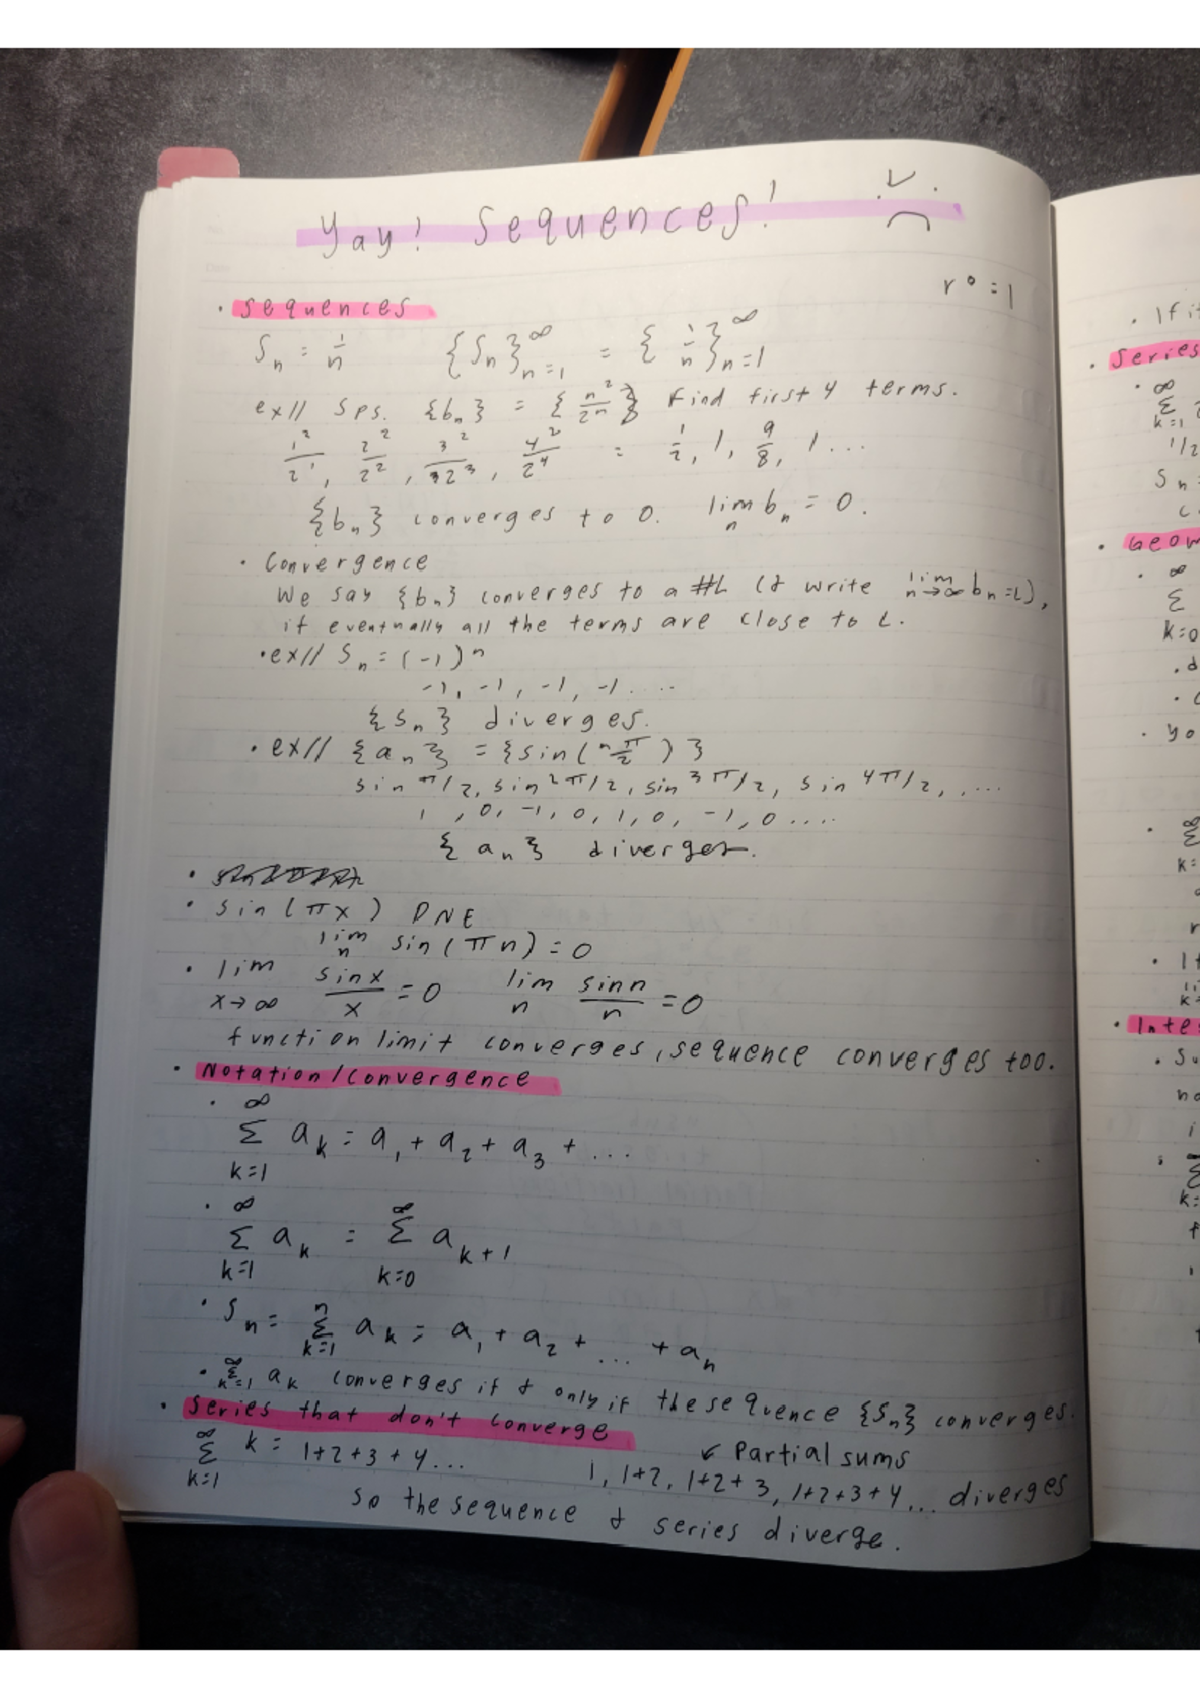 Yay! Sequences!
r⁰ = 1
• Sequences
Sₙ = 1/n {Sₙ}∞ₙ₌₁ = {1/n}∞ₙ₌₁
ex// Sps. {bₙ} = {n²/2ⁿ} Find first 4 terms.
1²/2¹, 2²/2², 3²/2³, 4²/2⁴ = 1/2, 1, 9/8, 1...
{bₙ} converges to 0. lim n bₙ = 0.
• Convergence
We say {bₙ} converges to a #L (& write lim n→∞ bₙ = L),
if eventually all the terms are close to L.
• ex// Sₙ = (-1)ⁿ
-1, -1, -1, -1....
{Sₙ} diverges.
• ex// {aₙ} = {sin(nπ/2)}
sin π/2, sin 2π/2, sin 3π/2, sin 4π/2, ....
1, 0, -1, 0, 1, 0, -1, 0....
{aₙ} diverges.
• sin(πx) DNE
lim n sin(πn) = 0
• lim x→∞ sinx/x = 0 lim n sinn/n = 0
function limit converges, sequence converges too.
• Notation/Convergence
• ∞ Σ k=1 aₖ = a₁ + a₂ + a₃ + ...
• ∞ Σ k=1 aₖ = ∞ Σ k=0 aₖ₊₁
• Sₙ = n Σ k=1 aₖ = a₁ + a₂ + ... + aₙ
• ∞ Σ k=1 aₖ converges if & only if the sequence {Sₙ} converges.
• Series that don't converge
∞ Σ k=1 k = 1+2+3+4...
↙ Partial sums
1, 1+2, 1+2+3, 1+2+3+4... diverges
so the sequence & series diverge.
• If it
• Series
• ∞ Σ k=1
1/2
Sₙ =
• Geom
• ∞ Σ k=0
• yo
∞ Σ k=
• If
• Inte
• Su